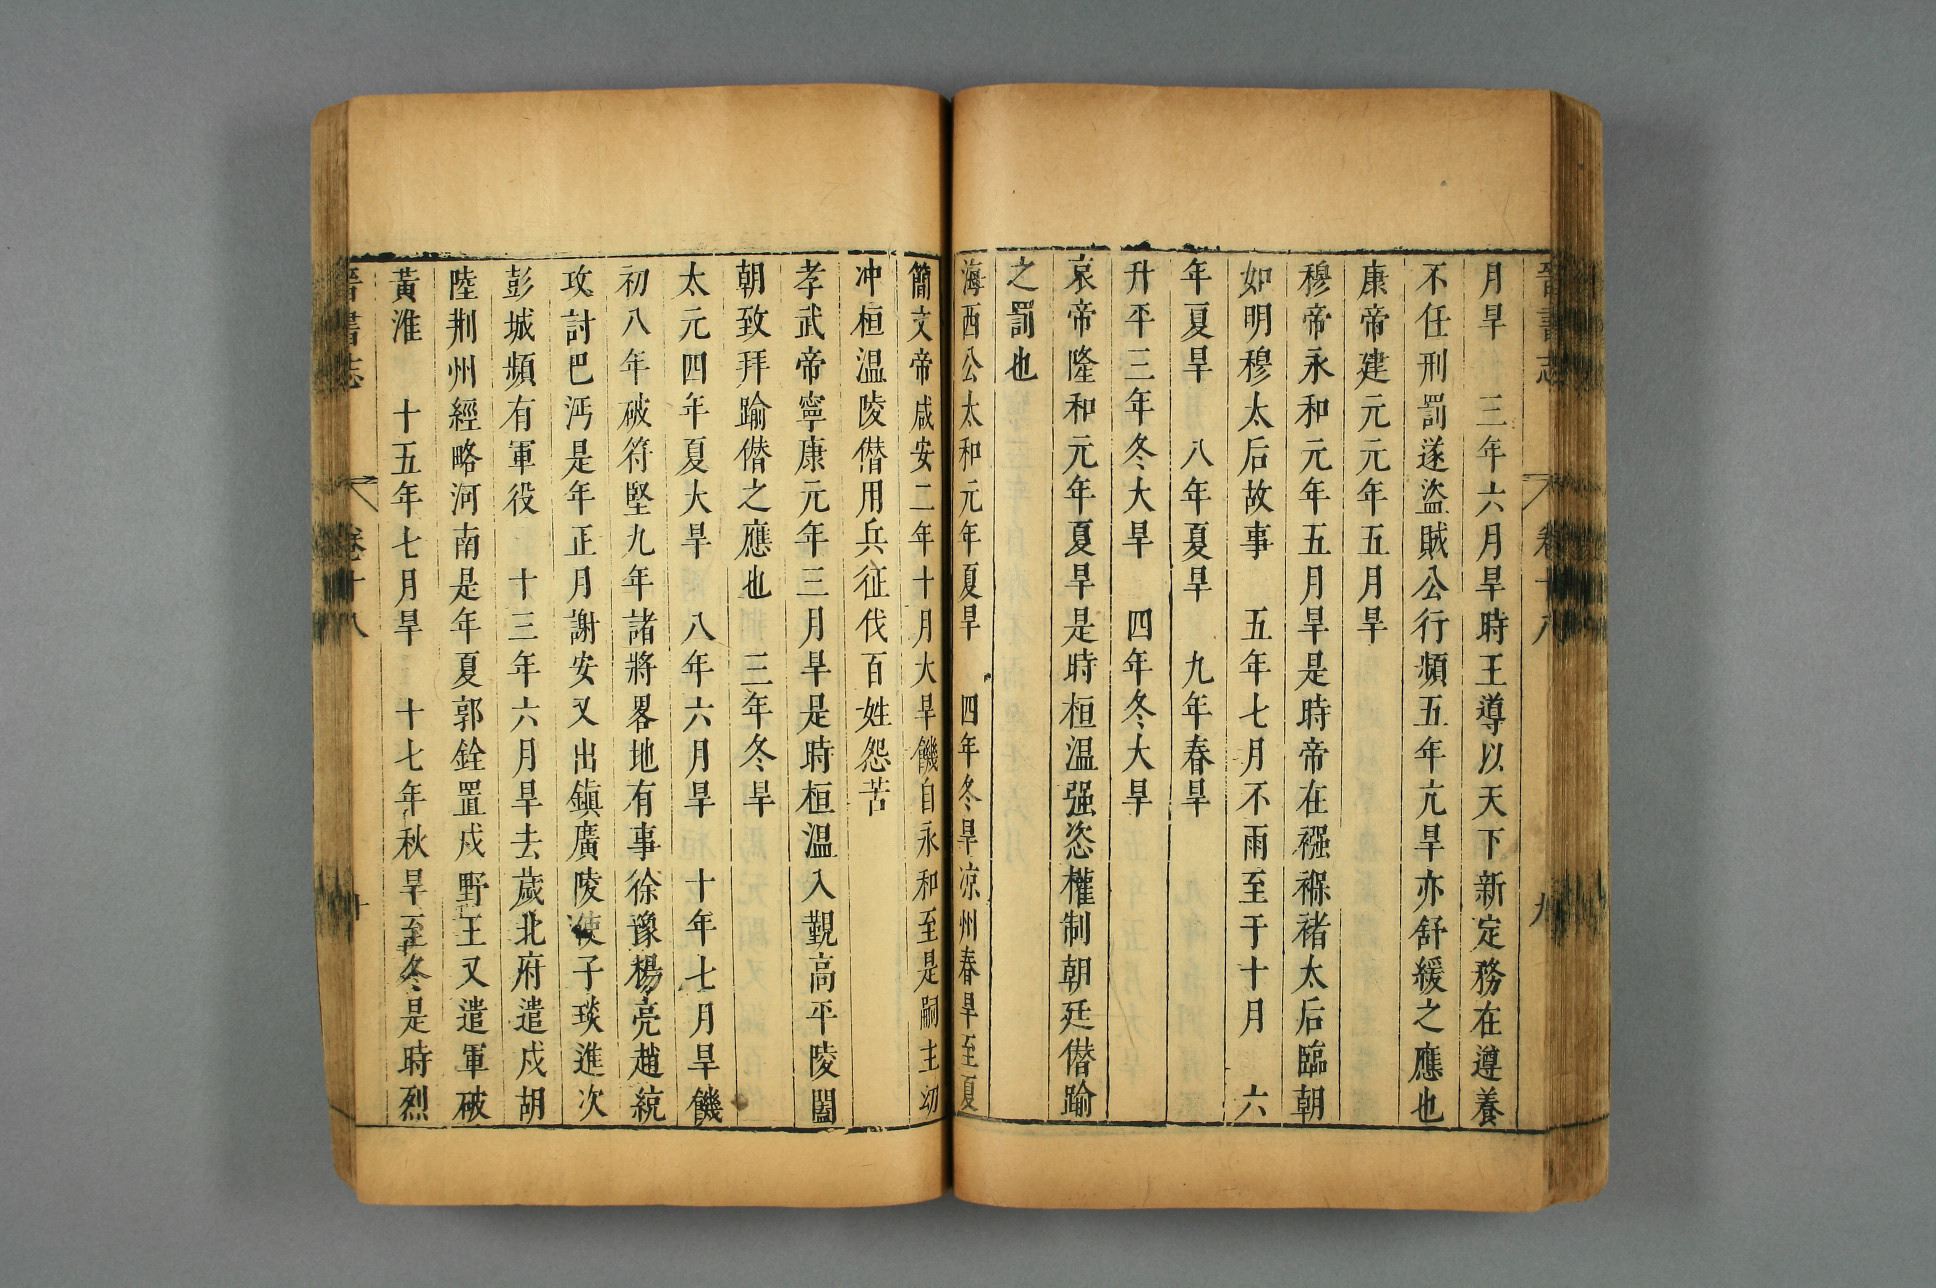 晉書志 卷十八 九
月旱 三年六月旱時王導以天下新定務在遵養
不任刑罰遂盜賊公行頻五年亢旱亦舒緩之應也
康帝建元元年五月旱
穆帝永和元年五月旱是時帝在襁褓褚太后臨朝
如明穆太后故事 五年七月不雨至于十月 六
年夏旱 八年夏旱 九年春旱
升平三年冬大旱 四年冬大旱
哀帝隆和元年夏旱是時桓温强恣權制朝廷僭踰
之罰也
海西公太和元年夏旱 四年冬旱凉州春旱至夏
簡文帝咸安二年十月大旱饑自永和至是嗣主幼
冲桓温陵僭用兵征伐百姓怨苦
孝武帝寧康元年三月旱是時桓温入覲高平陵闔
朝致拜踰僭之應也 三年冬旱
太元四年夏大旱 八年六月旱 十年七月旱饑
初八年破符堅九年諸將畧地有事徐豫楊亮趙統
攻討巴沔是年正月謝安又出鎮廣陵使子琰進次
彭城頻有軍役 十三年六月旱去歲北府遣戍胡
陸荆州經略河南是年夏郭銓置戍野王又遣軍破
黃淮 十五年七月旱 十七年秋旱至冬是時烈
晉書志 卷十八 十